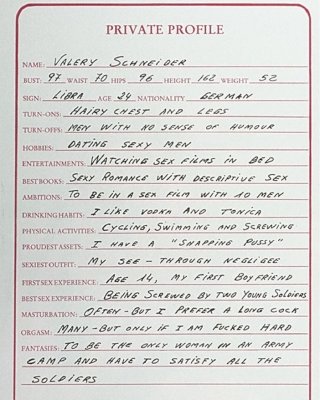 PRIVATE PROFILE
NAME: VALERY SCHNEIDER
BUST: 97 WAIST 70 HIPS 96 HEIGHT 162 WEIGHT 52
SIGN: LIBRA AGE 24 NATIONALITY GERMAN
TURN-ONS: HAIRY CHEST AND LEGS
TURN-OFFS: MEN WITH NO SENSE OF HUMOUR
HOBBIES: DATING SEXY MEN
ENTERTAINMENTS: WATCHING SEX FILMS IN BED
BEST BOOKS: SEXY ROMANCE WITH DESCRIPTIVE SEX
AMBITIONS: TO BE IN A SEX FILM WITH 10 MEN
DRINKING HABITS: I LIKE VODKA AND TONICA
PHYSICAL ACTIVITIES: CYCLING, SWIMMING AND SCREWING
PROUDEST ASSETS: I HAVE A "SNAPPING PUSSY"
SEXIEST OUTFIT: MY SEE-THROUGH NEGLIGEE
BEST SEX EXPERIENCE: BEING SCREWED BY TWO YOUNG SOLDIERS
MASTURBATION: OFTEN-BUT I PREFER A LONG COCK
ORGASM: MANY-BUT ONLY IF I AM FUCKED HARD
FANTASIES: TO BE THE ONLY WOMAN IN AN ARMY
CAMP AND HAVE TO SATISFY ALL THE
SOLDIERS